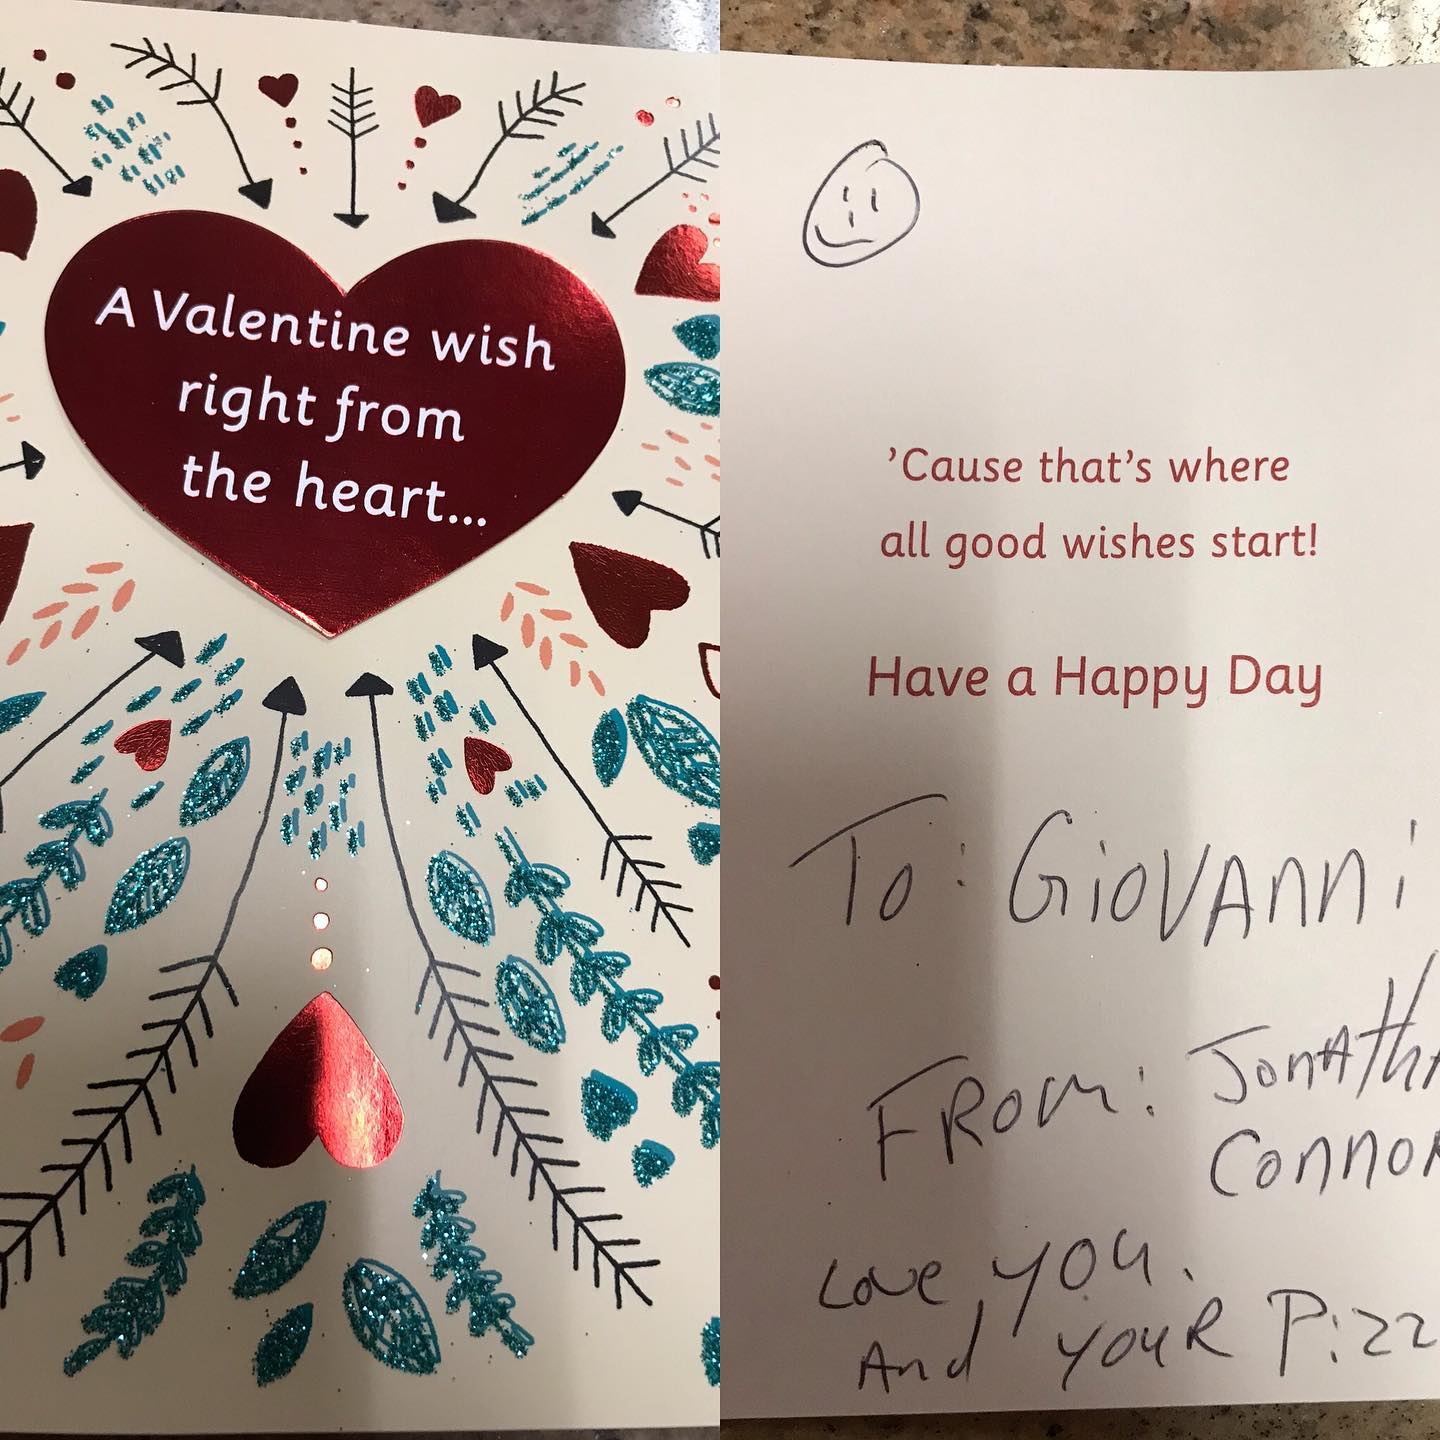 A Valentine wish
right from
the heart...
’Cause that’s where
all good wishes start!
Have a Happy Day
To: Giovanni
From: 
Love you.
And your